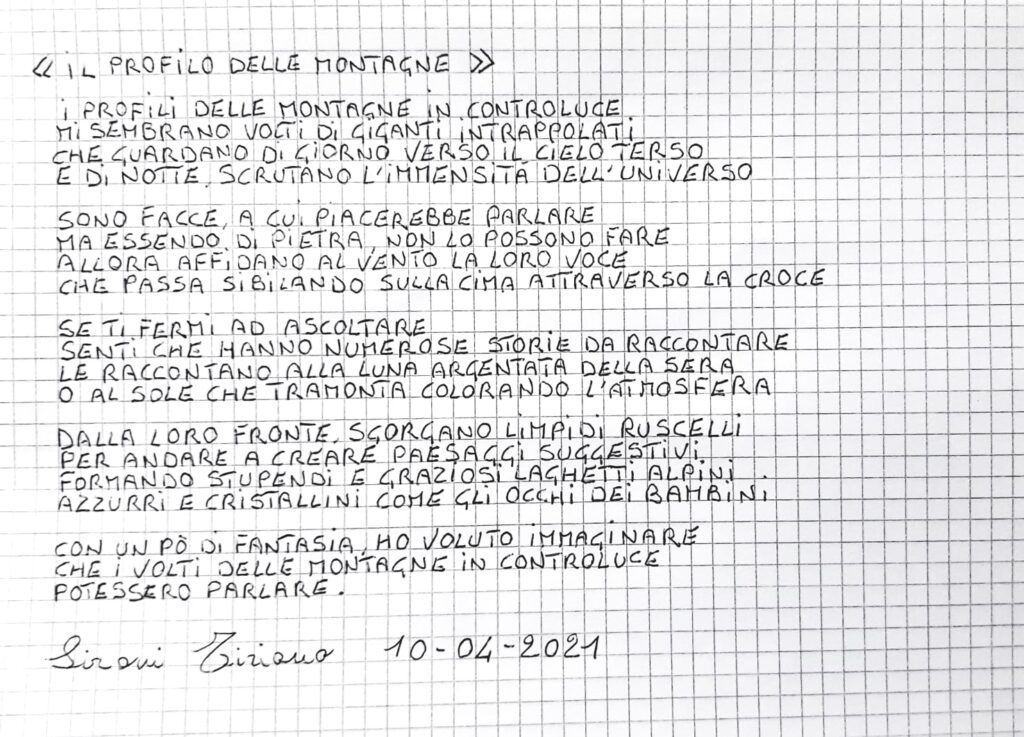 « IL PROFILO DELLE MONTAGNE »
I PROFILI DELLE MONTAGNE IN CONTROLUCE
MI SEMBRANO VOLTI DI GIGANTI INTRAPPOLATI
CHE GUARDANO DI GIORNO VERSO IL CIELO TERSO
E DI NOTTE, SCRUTANO L'IMMENSITÀ DELL'UNIVERSO
SONO FACCE, A CUI PIACEREBBE PARLARE
MA ESSENDO DI PIETRA, NON LO POSSONO FARE
ALLORA AFFIDANO AL VENTO LA LORO VOCE
CHE PASSA SIBILANDO SULLA CIMA ATTRAVERSO LA CROCE
SE TI FERMI AD ASCOLTARE
SENTI CHE HANNO NUMEROSE STORIE DA RACCONTARE
LE RACCONTANO ALLA LUNA ARGENTATA DELLA SERA
O AL SOLE CHE TRAMONTA COLORANDO L'ATMOSFERA
DALLA LORO FRONTE, SGORGANO LIMPIDI RUSCELLI
PER ANDARE A CREARE PAESAGGI SUGGESTIVI
FORMANDO STUPENDI E GRAZIOSI LAGHETTI ALPINI
AZZURRI E CRISTALLINI COME GLI OCCHI DEI BAMBINI
CON UN PÒ DI FANTASIA, HO VOLUTO IMMAGINARE
CHE I VOLTI DELLE MONTAGNE IN CONTROLUCE
POTESSERO PARLARE.
Sironi Tiziano 10-04-2021